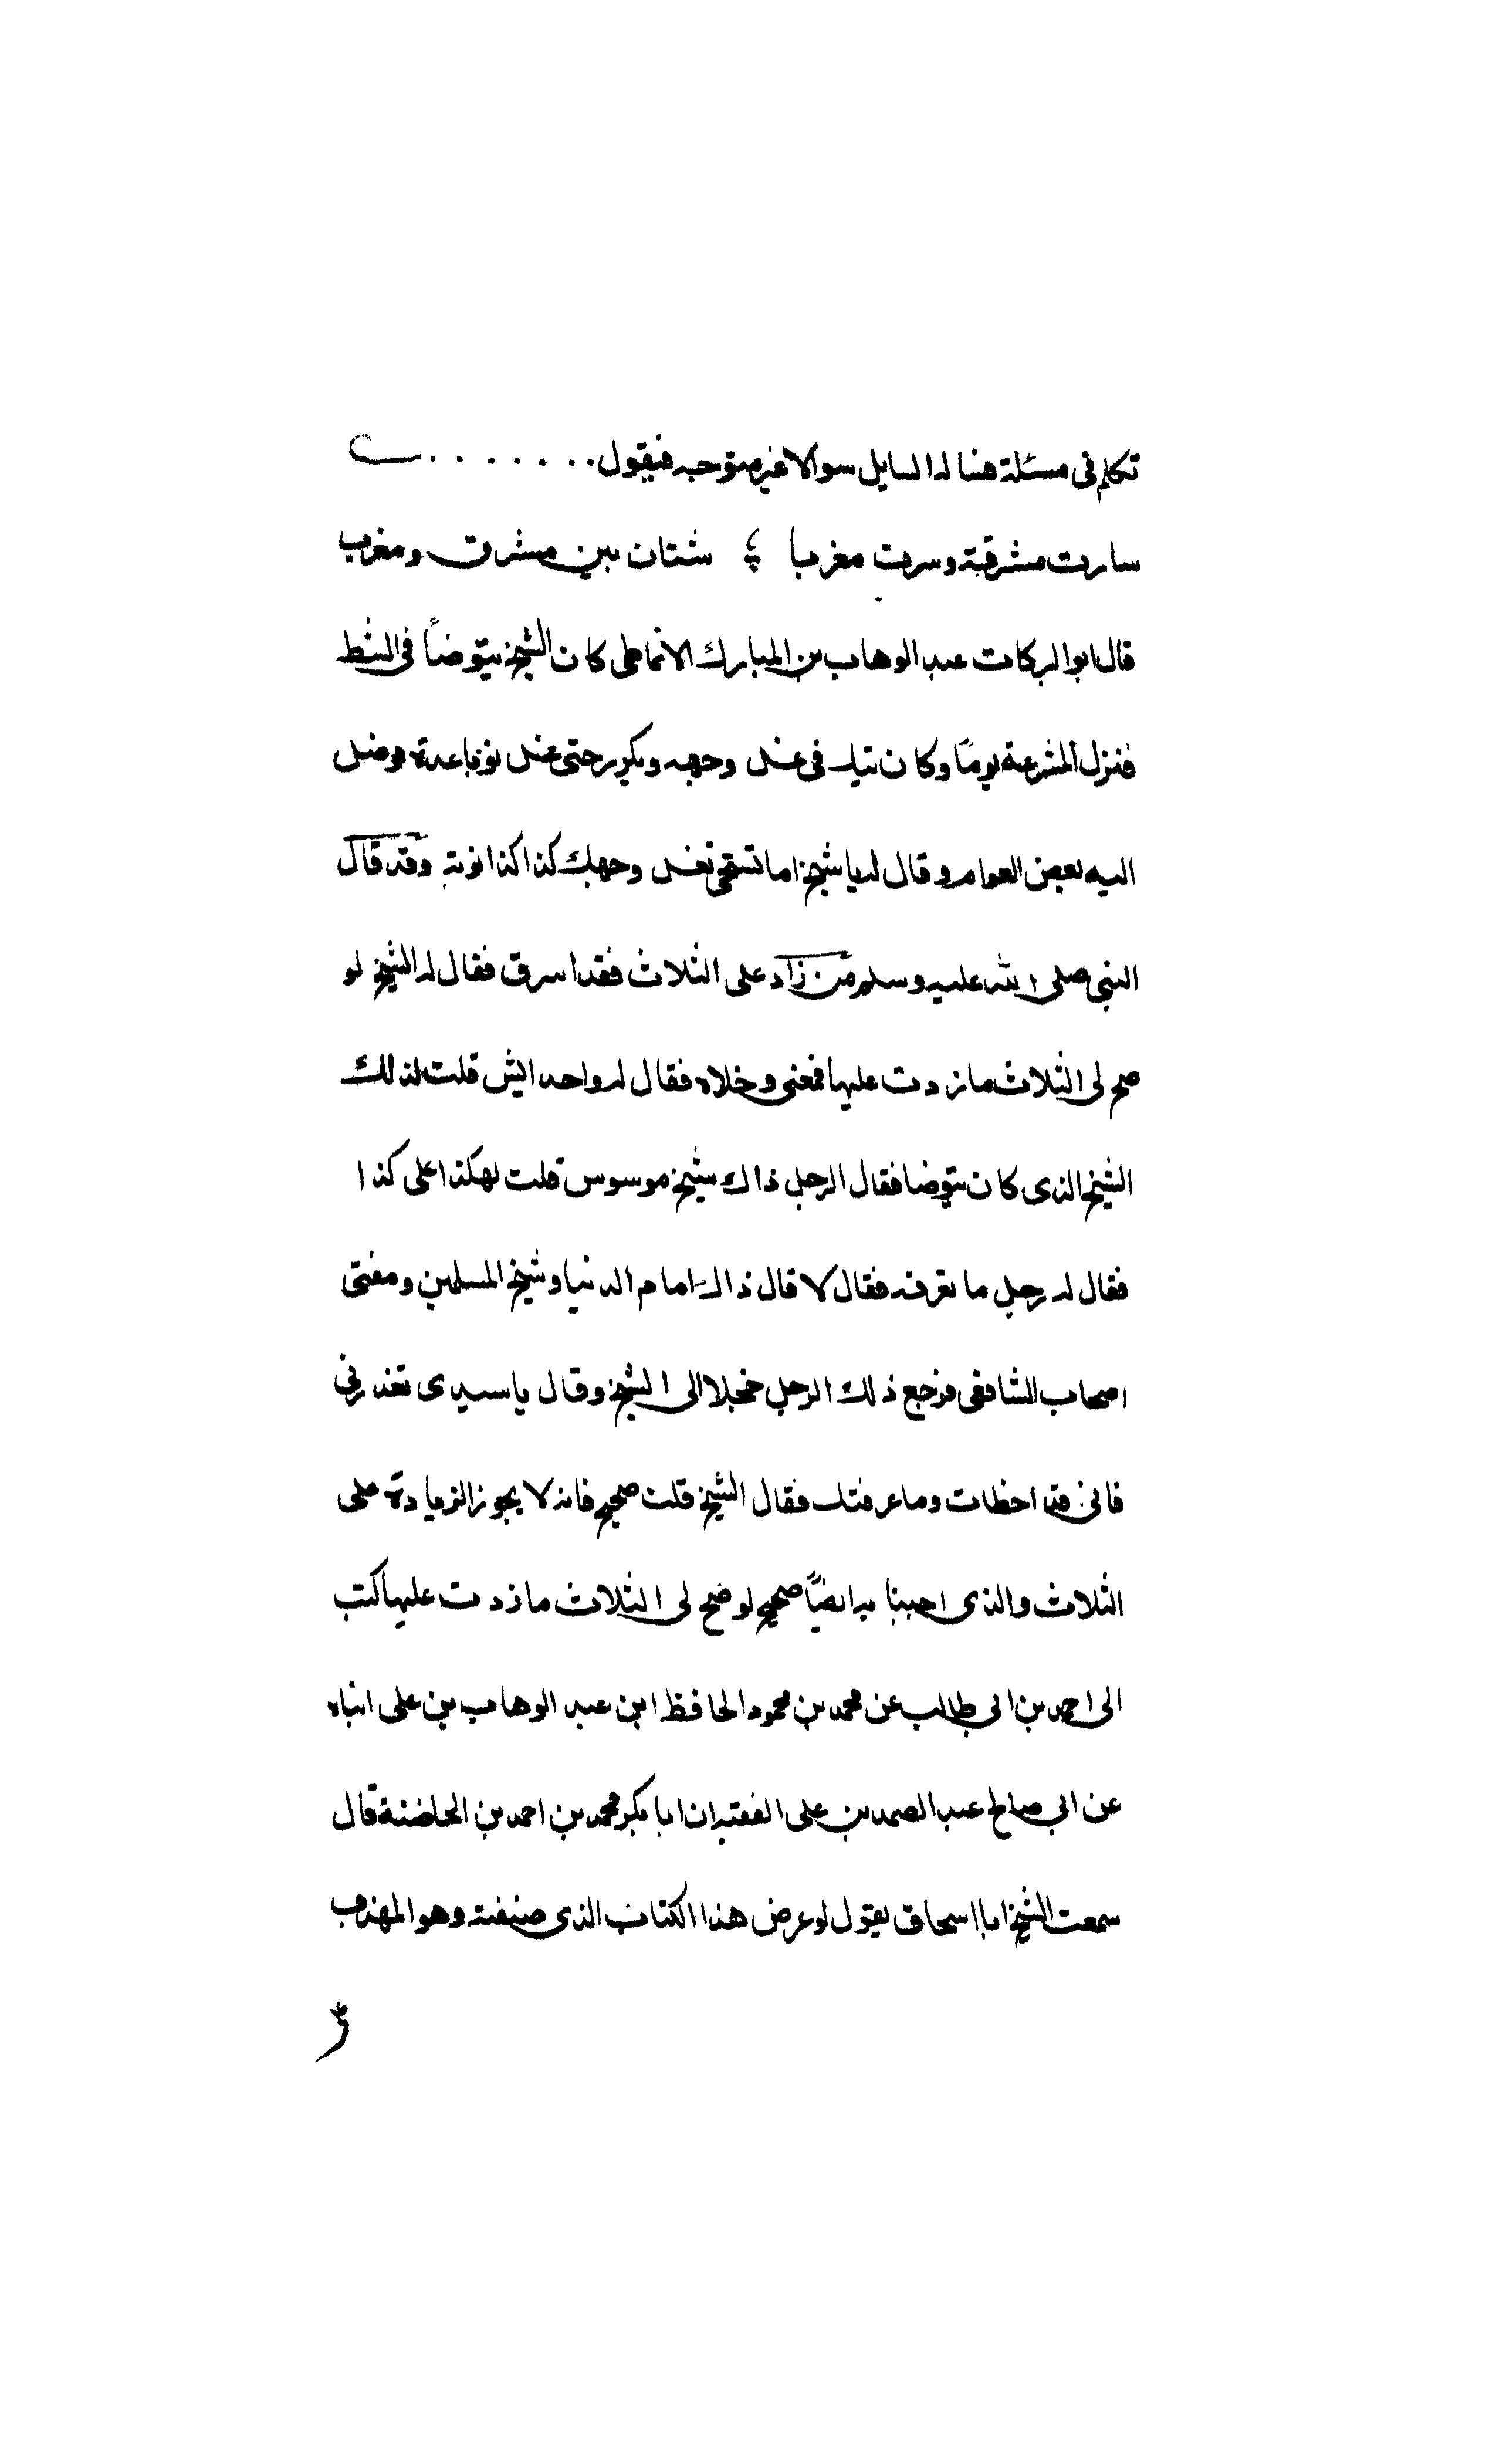 تكلم فى مسئلة فساله السايل سوالا غير متوجه فيقول . . . . . . . .
سارت مشرقة وسرت مغربا ؛ شتان بين مشرق ومغرب
قال ابو البركات عبد الوهاب بن المبارك الانماطى كان الشيخ يتوضأ فى الشط
فنزل المشرعة يومًا وكان يشك فى غسل وجهه ويكرر حتى غسل نوبا عدة فوصل
اليه بعض العوام وقال له يا شيخ اما تستحى تغسل وجهك كذا كذا نوبة وقد قال
النبى صلى الله عليه وسلم من زاد على الثلاث فقد اسرف فقال له الشيخ لو
صح لى الثلاث ما زدت عليها فمضى وخلاه فقال له واحد ايش قلت لذلك
الشيخ الذى كان يتوضا فقال الرجل ذاك شيخ موسوس قلت له كذا على كذا
فقال له رجل ما تعرفه فقال لا قال ذاك امام الدنيا وشيخ المسلمين ومفتى
اصحاب الشافعى فرجع ذلك الرجل خجلا الى الشيخ وقال يا سيدى تعذرنى
فانى قد اخطات وما عرفتك فقال الشيخ قلت صحيح فانه لا يجوز الزيادة على
الثلاث والذى اجبنا به ايضًا صحيح لو صح لى الثلاث ما زدت عليها كتب
الى احمد بن ابى طالب عن محمد بن محمود الحافظ ابن عبد الوهاب بن على انباه
عن ابى صالح عبد الصمد بن على الفقيه ان ابا بكر محمد بن احمد بن الحاضنة قال
سمعت الشيخ ابا اسحاق يقول لو عرض هذا الكتاب الذى صنفته وهو المهذب